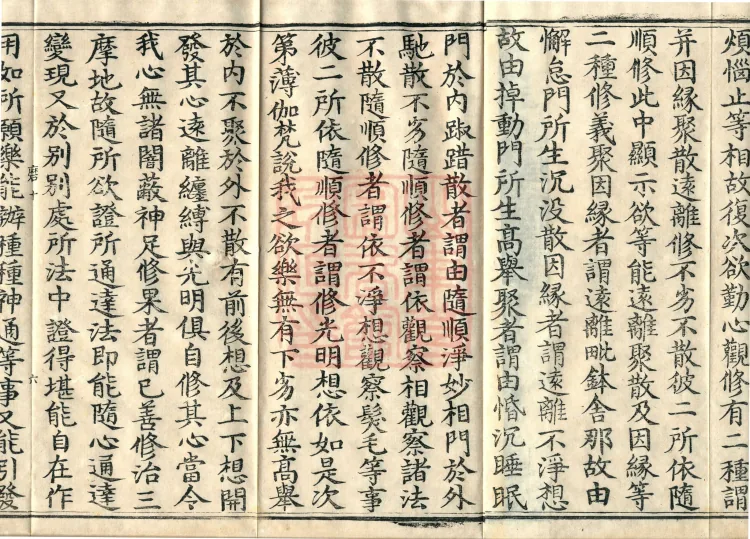 煩惱止等相故復次欲勤心觀修有二種謂
并因緣聚散遠離修不劣不散彼二所依隨
順修此中顯示欲等能遠離聚散及因緣等
二種修義聚因緣者謂遠離毗鉢舍那故由
懈怠門所生沉没散因緣者謂遠離不淨想
故由掉動門所生高舉聚者謂由惛沉睡眠
門於內踧踖散者謂由隨順淨妙相門於外
馳散不劣隨順修者謂依觀察相觀察諸法
不散隨順修者謂依不淨想觀察髮毛等事
彼二所依隨順修者謂修光明想依如是次
第薄伽梵說我之欲樂無有下劣亦無高舉
於內不聚於外不散有前後想及上下想開
發其心遠離纏縛與光明俱自修其心當令
我心無諸闇蔽神足修果者謂已善修治三
摩地故隨所欲證所通達法即能隨心通達
變現又於別別處所法中證得堪能自在作
用如所願樂能辦種種神通等事又能引發
磨十
六